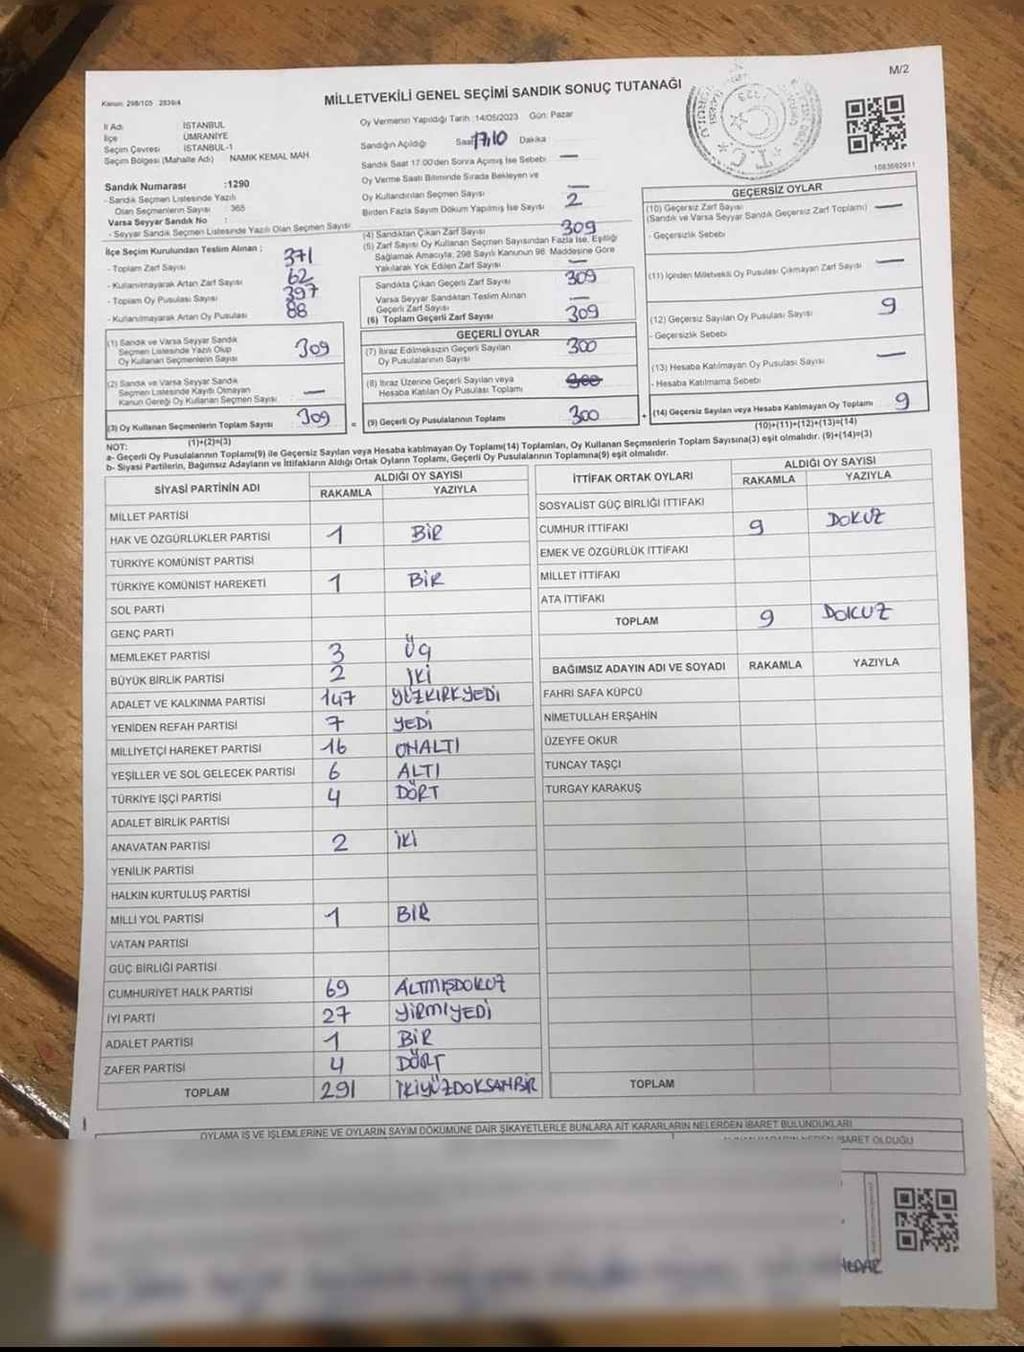 Kanun: 298/105 2839/4
M/2
MİLLETVEKİLİ GENEL SEÇİMİ SANDIK SONUÇ TUTANAĞI
İl Adı İSTANBUL
İlçe ÜMRANİYE
Seçim Çevresi İSTANBUL-1
Seçim Bölgesi (Mahalle Adı) NAMIK KEMAL MAH.
Sandık Numarası :1290
- Sandık Seçmen Listesinde Yazılı
Olan Seçmenlerin Sayısı : 365
Varsa Seyyar Sandık No :
- Seyyar Sandık Seçmen Listesinde Yazılı Olan Seçmen Sayısı
İlçe Seçim Kurulundan Teslim Alınan ;
- Toplam Zarf Sayısı 371
- Kullanılmayarak Artan Zarf Sayısı 62
- Toplam Oy Pusulası Sayısı 397
- Kullanılmayarak Artan Oy Pusulası 88
(1) Sandık ve Varsa Seyyar Sandık
Seçmen Listesinde Yazılı Olup
Oy Kullanan Seçmenlerin Sayısı 309
(2) Sandık ve Varsa Seyyar Sandık
Seçmen Listesinde Kayıtlı Olmayan
Kanun Gereği Oy Kullanan Seçmen Sayısı : —
(3) Oy Kullanan Seçmenlerin Toplam Sayısı 309
(1)+(2)=(3)
Oy Vermenin Yapıldığı Tarih :14/05/2023 Gün: Pazar
Sandığın Açıldığı Saat 17:10 Dakika
Sandık Saat 17:00'den Sonra Açılmış İse Sebebi —
Oy Verme Saati Bitiminde Sırada Bekleyen ve
Oy Kullandırılan Seçmen Sayısı —
Birden Fazla Sayım Döküm Yapılmış İse Sayısı 2
(4) Sandıktan Çıkan Zarf Sayısı 309
(5) Zarf Sayısı Oy Kullanan Seçmen Sayısından Fazla İse, Eşitliği
Sağlamak Amacıyla, 298 Sayılı Kanunun 98. Maddesine Göre
Yakılarak Yok Edilen Zarf Sayısı —
Sandıkta Çıkan Geçerli Zarf Sayısı 309
Varsa Seyyar Sandıktan Teslim Alınan
Geçerli Zarf Sayısı —
(6) Toplam Geçerli Zarf Sayısı 309
GEÇERLİ OYLAR
(7) İtiraz Edilmeksizin Geçerli Sayılan
Oy Pusulalarının Sayısı 300
(8) İtiraz Üzerine Geçerli Sayılan veya
Hesaba Katılan Oy Pusulası Toplamı
= (9) Geçerli Oy Pusulalarının Toplamı 300 +
1083692911
GEÇERSİZ OYLAR
(10) Geçersiz Zarf Sayısı
(Sandık ve Varsa Seyyar Sandık Geçersiz Zarf Toplamı) —
- Geçersizlik Sebebi
(11) İçinden Milletvekili Oy Pusulası Çıkmayan Zarf Sayısı —
(12) Geçersiz Sayılan Oy Pusulası Sayısı 9
- Geçersizlik Sebebi
(13) Hesaba Katılmayan Oy Pusulası Sayısı —
- Hesaba Katılmama Sebebi
(14) Geçersiz Sayılan veya Hesaba Katılmayan Oy Toplamı 9
(10)+(11)+(12)+(13)=(14)
NOT:
a- Geçerli Oy Pusulalarının Toplamı(9) ile Geçersiz Sayılan veya Hesaba katılmayan Oy Toplamı(14) Toplamları, Oy Kullanan Seçmenlerin Toplam Sayısına(3) eşit olmalıdır. (9)+(14)=(3)
b- Siyasi Partilerin, Bağımsız Adayların ve İttifakların Aldığı Ortak Oyların Toplamı, Geçerli Oy Pusulalarının Toplamına(9) eşit olmalıdır.
SİYASİ PARTİNİN ADI ALDIĞI OY SAYISI
RAKAMLA YAZIYLA
MİLLET PARTİSİ
HAK VE ÖZGÜRLÜKLER PARTİSİ 1 BİR
TÜRKİYE KOMÜNİST PARTİSİ
TÜRKİYE KOMÜNİST HAREKETİ 1 BİR
SOL PARTİ
GENÇ PARTİ
MEMLEKET PARTİSİ 3 ÜÇ
BÜYÜK BİRLİK PARTİSİ 2 İKİ
ADALET VE KALKINMA PARTİSİ 147 YÜZKIRKYEDİ
YENİDEN REFAH PARTİSİ 7 YEDİ
MİLLİYETÇİ HAREKET PARTİSİ 16 ONALTI
YEŞİLLER VE SOL GELECEK PARTİSİ 6 ALTI
TÜRKİYE İŞÇİ PARTİSİ 4 DÖRT
ADALET BİRLİK PARTİSİ
ANAVATAN PARTİSİ 2 İKİ
YENİLİK PARTİSİ
HALKIN KURTULUŞ PARTİSİ
MİLLİ YOL PARTİSİ 1 BİR
VATAN PARTİSİ
GÜÇ BİRLİĞİ PARTİSİ
CUMHURİYET HALK PARTİSİ 69 ALTMIŞDOKUZ
İYİ PARTİ 27 YİRMİYEDİ
ADALET PARTİSİ 1 BİR
ZAFER PARTİSİ 4 DÖRT
TOPLAM 291 İKİYÜZDOKSANBİR
İTTİFAK ORTAK OYLARI ALDIĞI OY SAYISI
RAKAMLA YAZIYLA
SOSYALİST GÜÇ BİRLİĞİ İTTİFAKI
CUMHUR İTTİFAKI 9 DOKUZ
EMEK VE ÖZGÜRLÜK İTTİFAKI
MİLLET İTTİFAKI
ATA İTTİFAKI
TOPLAM 9 DOKUZ
BAĞIMSIZ ADAYIN ADI VE SOYADI RAKAMLA YAZIYLA
FAHRİ SAFA KÜPCÜ
NİMETULLAH ERŞAHİN
ÜZEYFE OKUR
TUNCAY TAŞÇI
TURGAY KARAKUŞ
TOPLAM
OYLAMA İŞ VE İŞLEMLERİNE VE OYLARIN SAYIM DÖKÜMÜNE DAİR ŞİKAYETLERLE BUNLARA AİT KARARLARIN NELERDEN İBARET BULUNDUKLARI
İBARET OLDUĞU